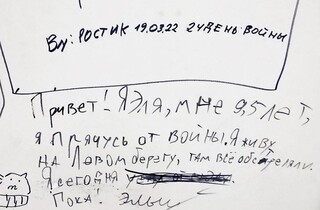 Вы: РОСТИК 19.03.22 24 ДЕНЬ ВОЙНЫ
Привет! Я Эля, мне 9,5 лет,
я прячусь от войны. Я живу
на Левом берегу, там всё обстреляли.
Я сегодня
Пока!